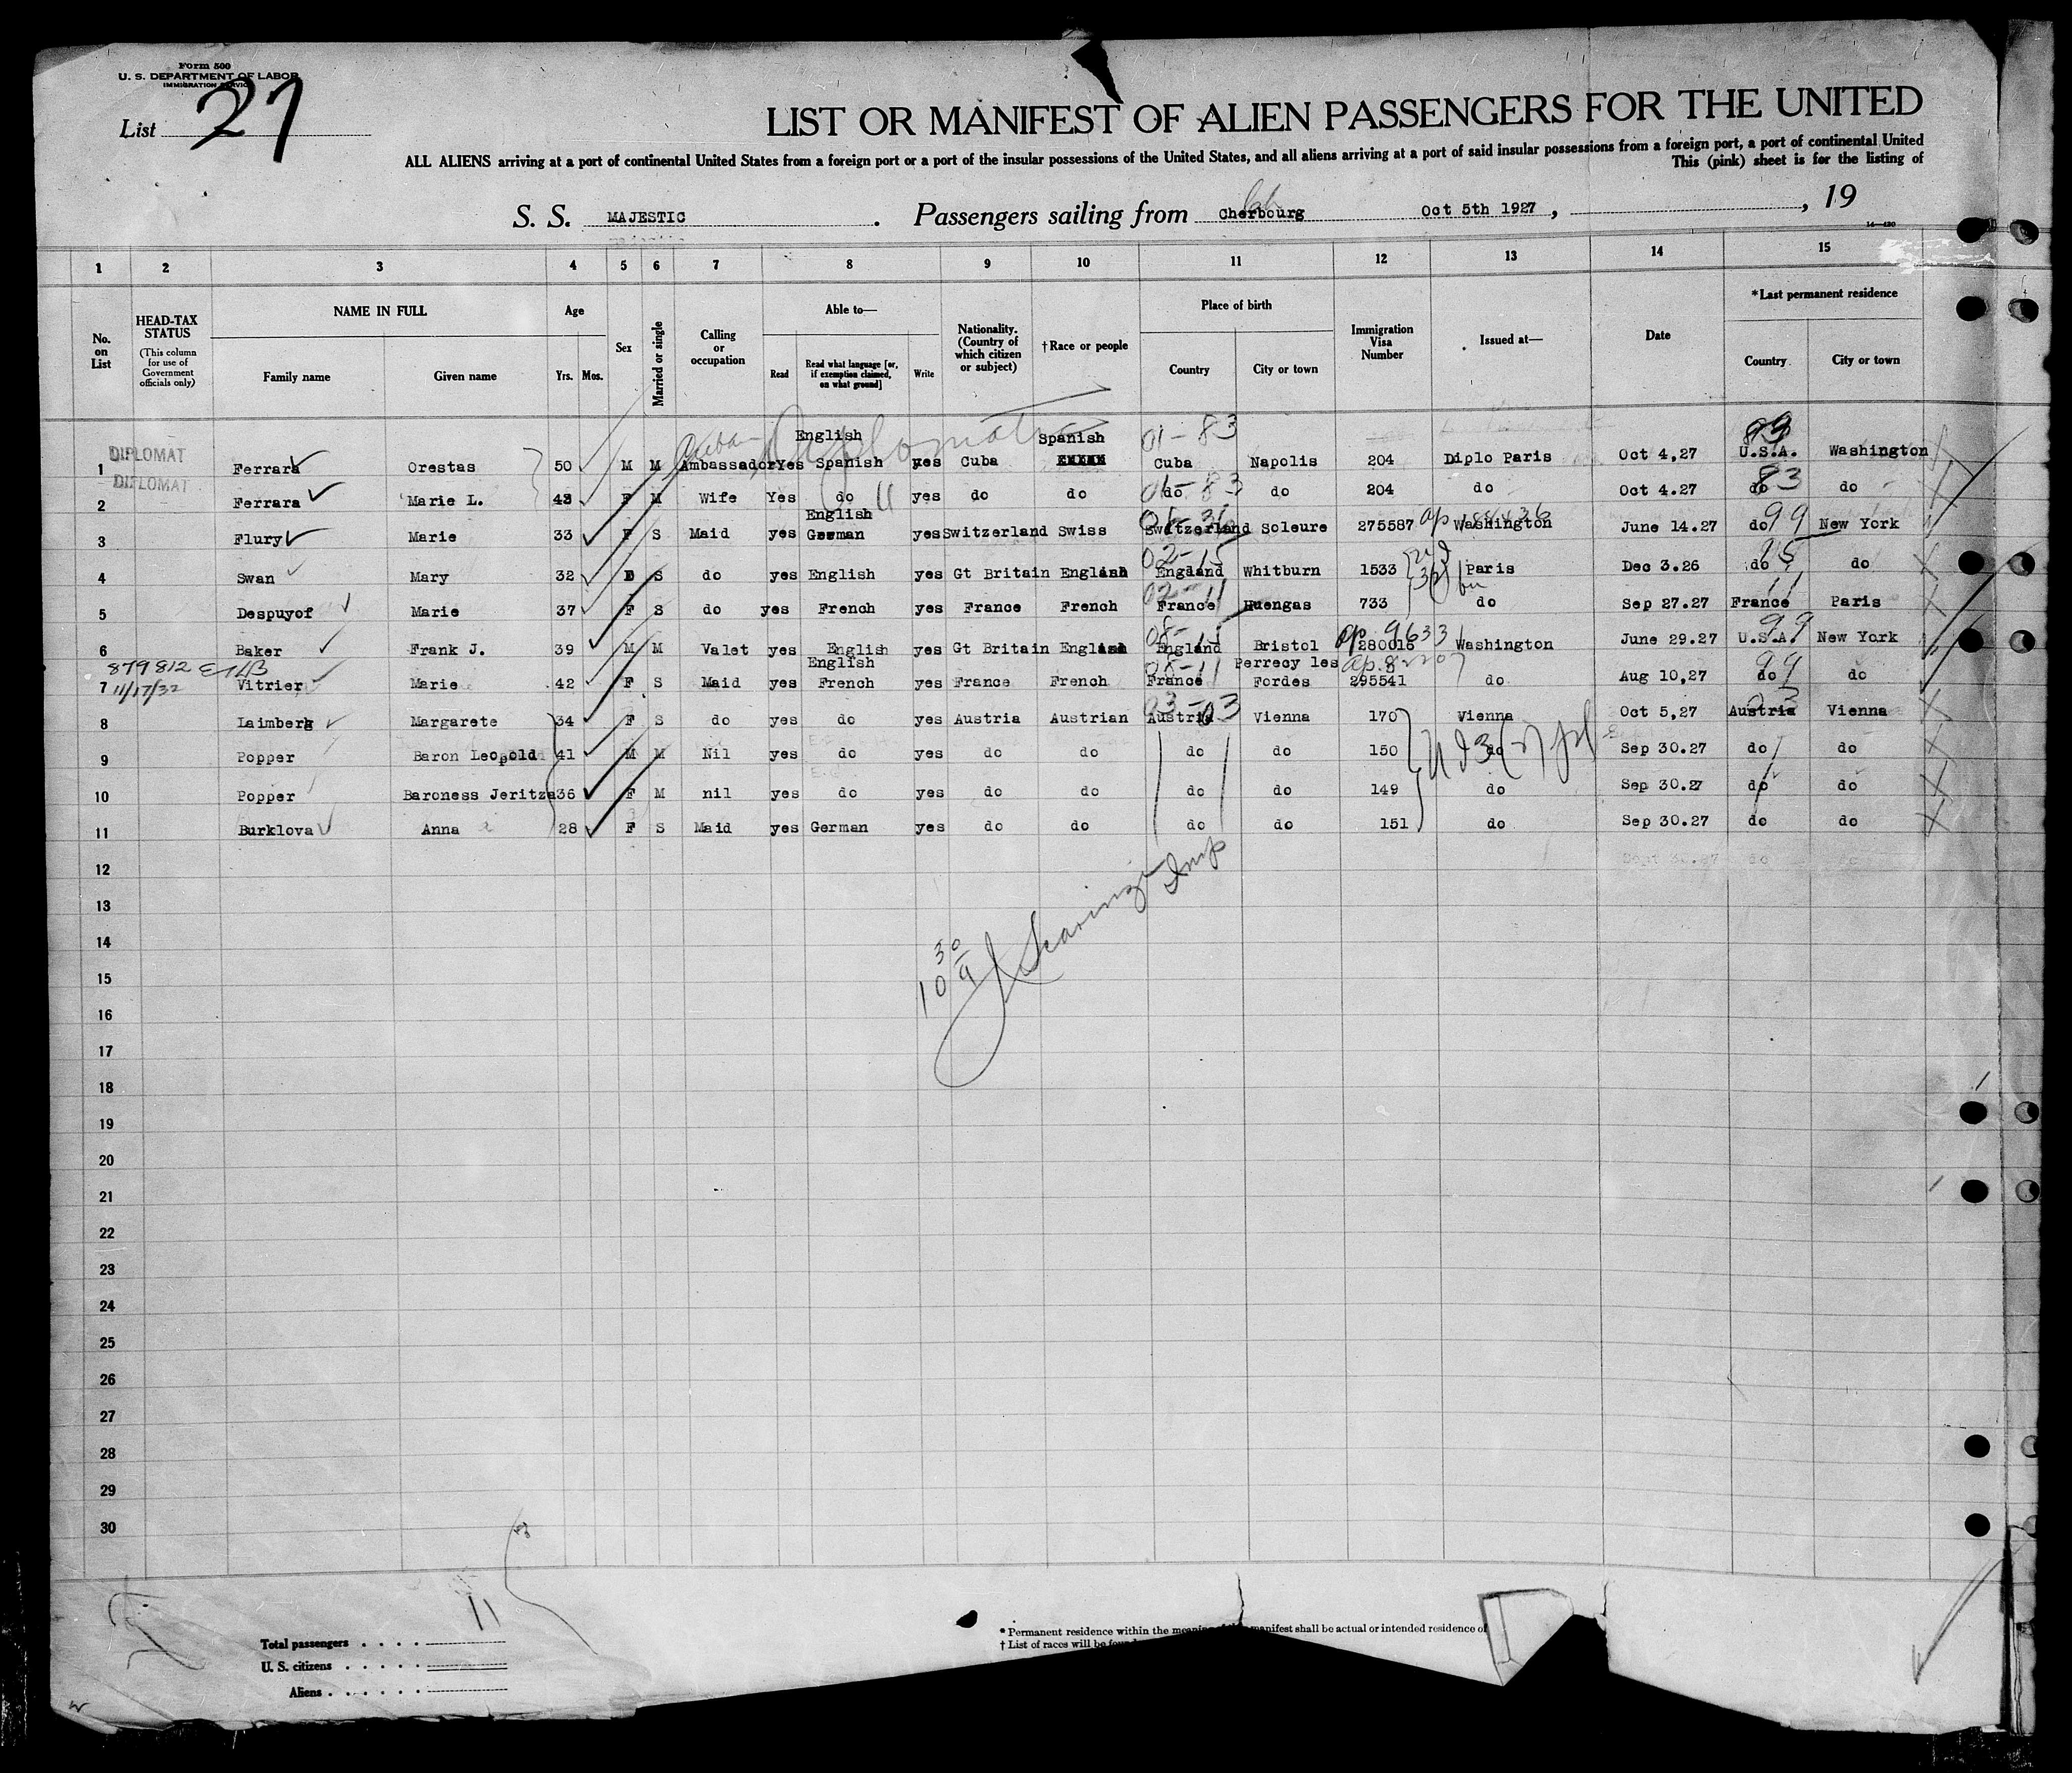 Form 500
U. S. DEPARTMENT OF LABOR
IMMIGRATION SERVICE
List 27
LIST OR MANIFEST OF ALIEN PASSENGERS FOR THE UNITED
ALL ALIENS arriving at a port of continental United States from a foreign port or a port of the insular possessions of the United States, and all aliens arriving at a port of said insular possessions from a foreign port, a port of continental United
This (pink) sheet is for the listing of
S. S. MAJESTIC. Passengers sailing from Cherbourg Oct 5th 1927, , 19
14—430
1 2 3 4 5 6 7 8 9 10 11 12 13 14 15
No. on List
HEAD-TAX STATUS
(This column for use of Government officials only)
NAME IN FULL
Family name Given name
Age
Yrs. Mos.
Sex
Married or single
Calling or occupation
Able to—
Read Read what language [or, if exemption claimed, on what ground] Write
Nationality. (Country of which citizen or subject)
†Race or people
Place of birth
Country City or town
Immigration Visa Number
Issued at—
Date
*Last permanent residence
Country City or town
Cuban Diplomat
English Spanish 01-83
DIPLOMAT
1 Ferrara Orestas 50 M M Ambassador Yes Spanish yes Cuba Cuba Napolis 204 Diplo Paris Oct 4,27 U.S.A. Washington
DIPLOMAT
2 Ferrara Marie L. 43 F M Wife Yes do yes do do do do 204 do Oct 4.27 do do
English
3 Flury Marie 33 F S Maid yes German yes Switzerland Swiss Switzerland Soleure 275587 Washington June 14.27 do New York
02-15
4 Swan Mary 32 S do yes English yes Gt Britain English England Whitburn 1533 Paris Dec 3.26 do do
02-11
5 Despuyof Marie 37 F S do yes French yes France French France Huengas 733 do Sep 27.27 France Paris
ap. 9633
6 Baker Frank J. 39 M M Valet yes English yes Gt Britain English England Bristol 280016 Washington June 29.27 U.S.A. New York
879812
English Perrecy les
7 11/17/32 Vitrier Marie 42 F S Maid yes French yes France French France Fordes 295541 do Aug 10,27 do do
03-03
8 Laimberg Margarete 34 F S do yes do yes Austria Austrian Austria Vienna 170 Vienna Oct 5,27 Austria Vienna
9 Popper Baron Leopold 41 M M Nil yes do yes do do do do 150 do Sep 30.27 do do
10 Popper Baroness Jeritza 36 F M nil yes do yes do do do do 149 do Sep 30.27 do do
11 Burklova Anna 28 F S Maid yes German yes do do do do 151 do Sep 30.27 do do
12
13
14
15
16
17
18
19
20
21
22
23
24
25
26
27
28
29
30
11
Total passengers
U. S. citizens
Aliens
* Permanent residence within the meaning manifest shall be actual or intended residence of
† List of races will be found